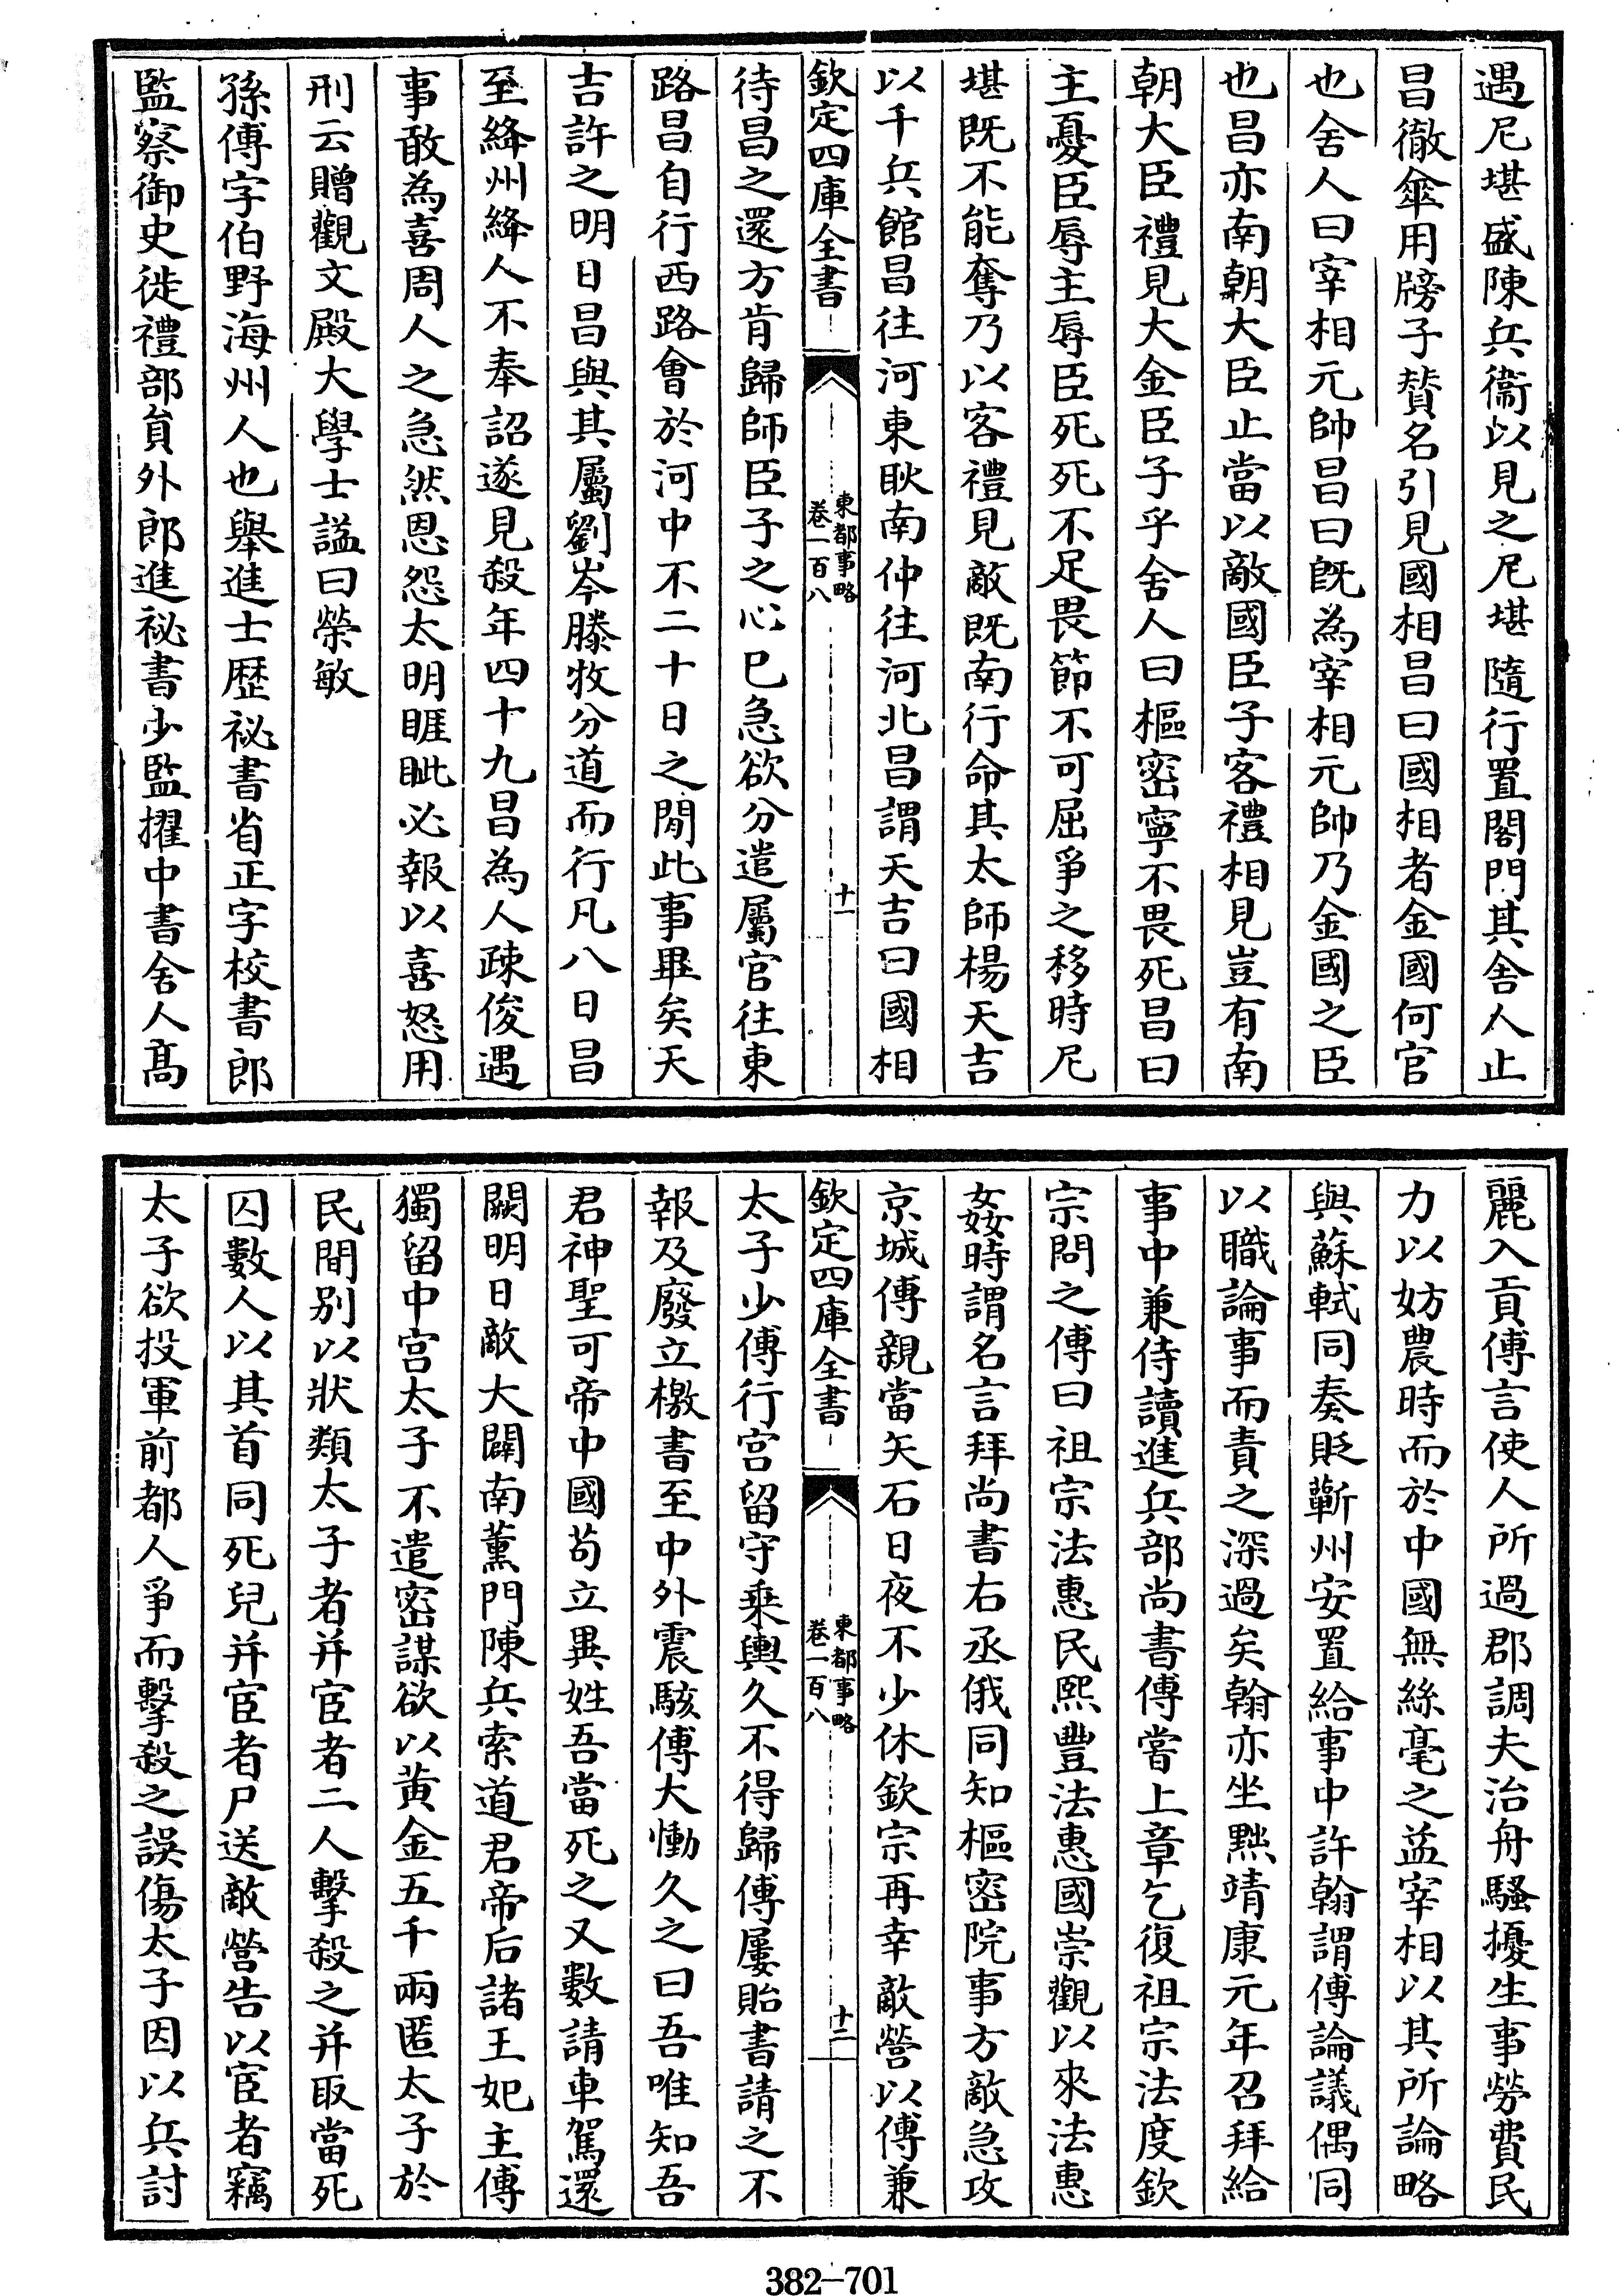 遇尼堪盛陳兵衞以見之尼堪隨行置閣門其舍人止
昌徹傘用牓子贊名引見國相昌曰國相者金國何官
也舍人曰宰相元帥昌曰既為宰相元帥乃金國之臣
也昌亦南朝大臣止當以敵國臣子客禮相見豈有南
朝大臣禮見大金臣子乎舍人曰樞密寧不畏死昌曰
主憂臣辱主辱臣死死不足畏節不可屈爭之移時尼
堪既不能奪乃以客禮見敵既南行命其太師楊天吉
以千兵館昌往河東耿南仲往河北昌謂天吉曰國相
欽定四庫全書
東都事略
卷一百八
十一
待昌之還方肯歸師臣子之心已急欲分遣屬官往東
路昌自行西路會於河中不二十日之閒此事畢矣天
吉許之明日昌與其屬劉岑滕牧分道而行凡八日昌
至絳州絳人不奉詔遂見殺年四十九昌為人疎俊遇
事敢為喜周人之急然恩怨太明睚眦必報以喜怒用
刑云贈觀文殿大學士謚曰榮敏
孫傅字伯野海州人也舉進士歴祕書省正字校書郎
監察御史徙禮部貟外郎進祕書少監擢中書舍人髙
麗入貢傅言使人所過郡調夫治舟騷擾生事勞費民
力以妨農時而於中國無絲毫之益宰相以其所論略
與蘇軾同奏貶蘄州安置給事中許翰謂傅論議偶同
以職論事而責之深過矣翰亦坐黜靖康元年召拜給
事中兼侍讀進兵部尚書傅嘗上章乞復祖宗法度欽
宗問之傅曰祖宗法惠民熙豐法惠國崇觀以來法惠
姦時謂名言拜尚書右丞俄同知樞密院事方敵急攻
京城傅親當矢石日夜不少休欽宗再幸敵營以傅兼
欽定四庫全書
東都事略
卷一百八
十二
太子少傅行宫留守乗輿久不得歸傅屢貽書請之不
報及廢立檄書至中外震駭傅大慟久之曰吾唯知吾
君神聖可帝中國苟立異姓吾當死之又數請車駕還
闕明日敵大闢南薰門陳兵索道君帝后諸王妃主傅
獨留中宫太子不遣密謀欲以黄金五千兩匿太子於
民間别以狀類太子者并宦者二人擊殺之并取當死
囚數人以其首同死兒并宦者尸送敵營告以宦者竊
太子欲投軍前都人爭而擊殺之誤傷太子因以兵討
382-701